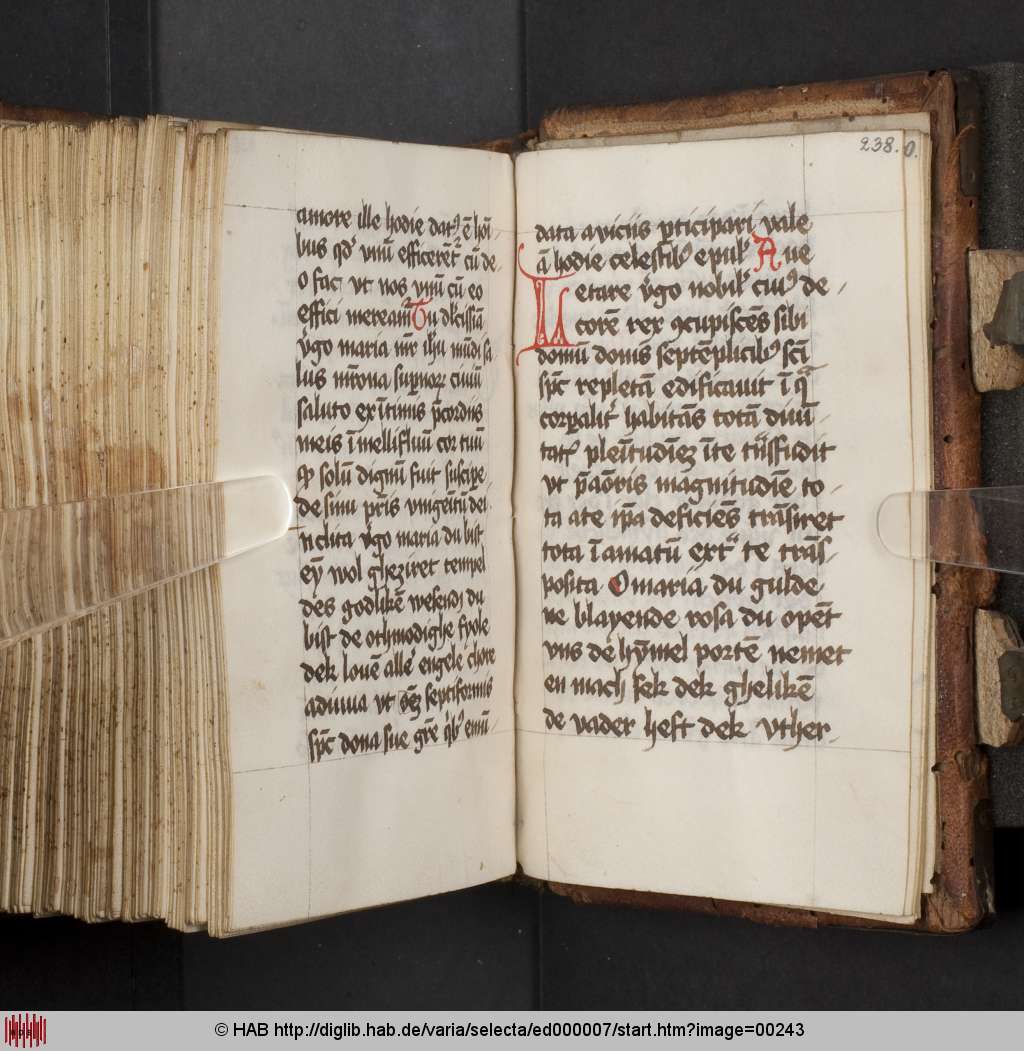 amore ille hodie dat᷒ ē hoī
bus qd᷒ vnū efficeret᷑ cū de
o fac vt nos vnū cū eo
effici meream᷑ Tu dl̄cissīa
v̾go maria mr̄ ih̄u mūdi sa
lus mr̄ona sup̄nor̄ ciuiū
saluto ex ītimis p̄cordiis
meis ī mellifluū cor tuū
solū dignū fuit suscipe
de sinu pr̄is vnigeītū dei
nclita v̾go maria du bist
eȳ wol gheziret tempel
des godlikē wesendꝫ du
bist de othmodighe fyole
dek louē alle engele chore
adiuua vt septiformis
sp̄c dona sue gr̄e qͥb᷒ emū
238. 0.
data a viciis p̱ticipari vale
ā hodie celestib᷒ epul᷒ Aue
Letare v̾go nobil᷒ cui᷒ de
corē rex ꝯcupiscēs sibi
domū donis septēplicib᷒ sc̄i
sp̄c repletā edificauit ī q̄
corꝑalit᷑ habitās totā diuī
tat᷒ pleītudīeꝫ ī te trāsfudit
vt p̄ amoris magnitudīe to
ta a te ip̄a deficiēs trāsiret
tota ī amatū ext᷑ te trās
posita O maria du gulde
ne blayende rosa du opēt
vns de hȳmel portē nemet
en mach sek dek ghelikē
de vader heft dek vther
© HAB http://diglib.hab.de/varia/selecta/ed000007/start.htm?image=00243